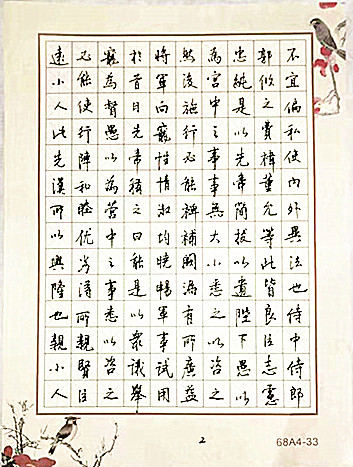 不宜偏私使內外異法也侍中侍郎
郭攸之費禕董允等此皆良臣志慮
忠純是以先帝簡拔以遺陛下愚以
為宮中之事事無大小悉之以咨之
然後施行必能裨補闕漏有所廣益
將軍向寵性情淑均曉暢軍事試用
於昔日先帝稱之曰能是以眾議舉
寵為督愚以為營中之事悉以咨之
必能使行陣和睦優劣得所親賢臣
遠小人此先漢所以興隆也親小人
2
68A4-33